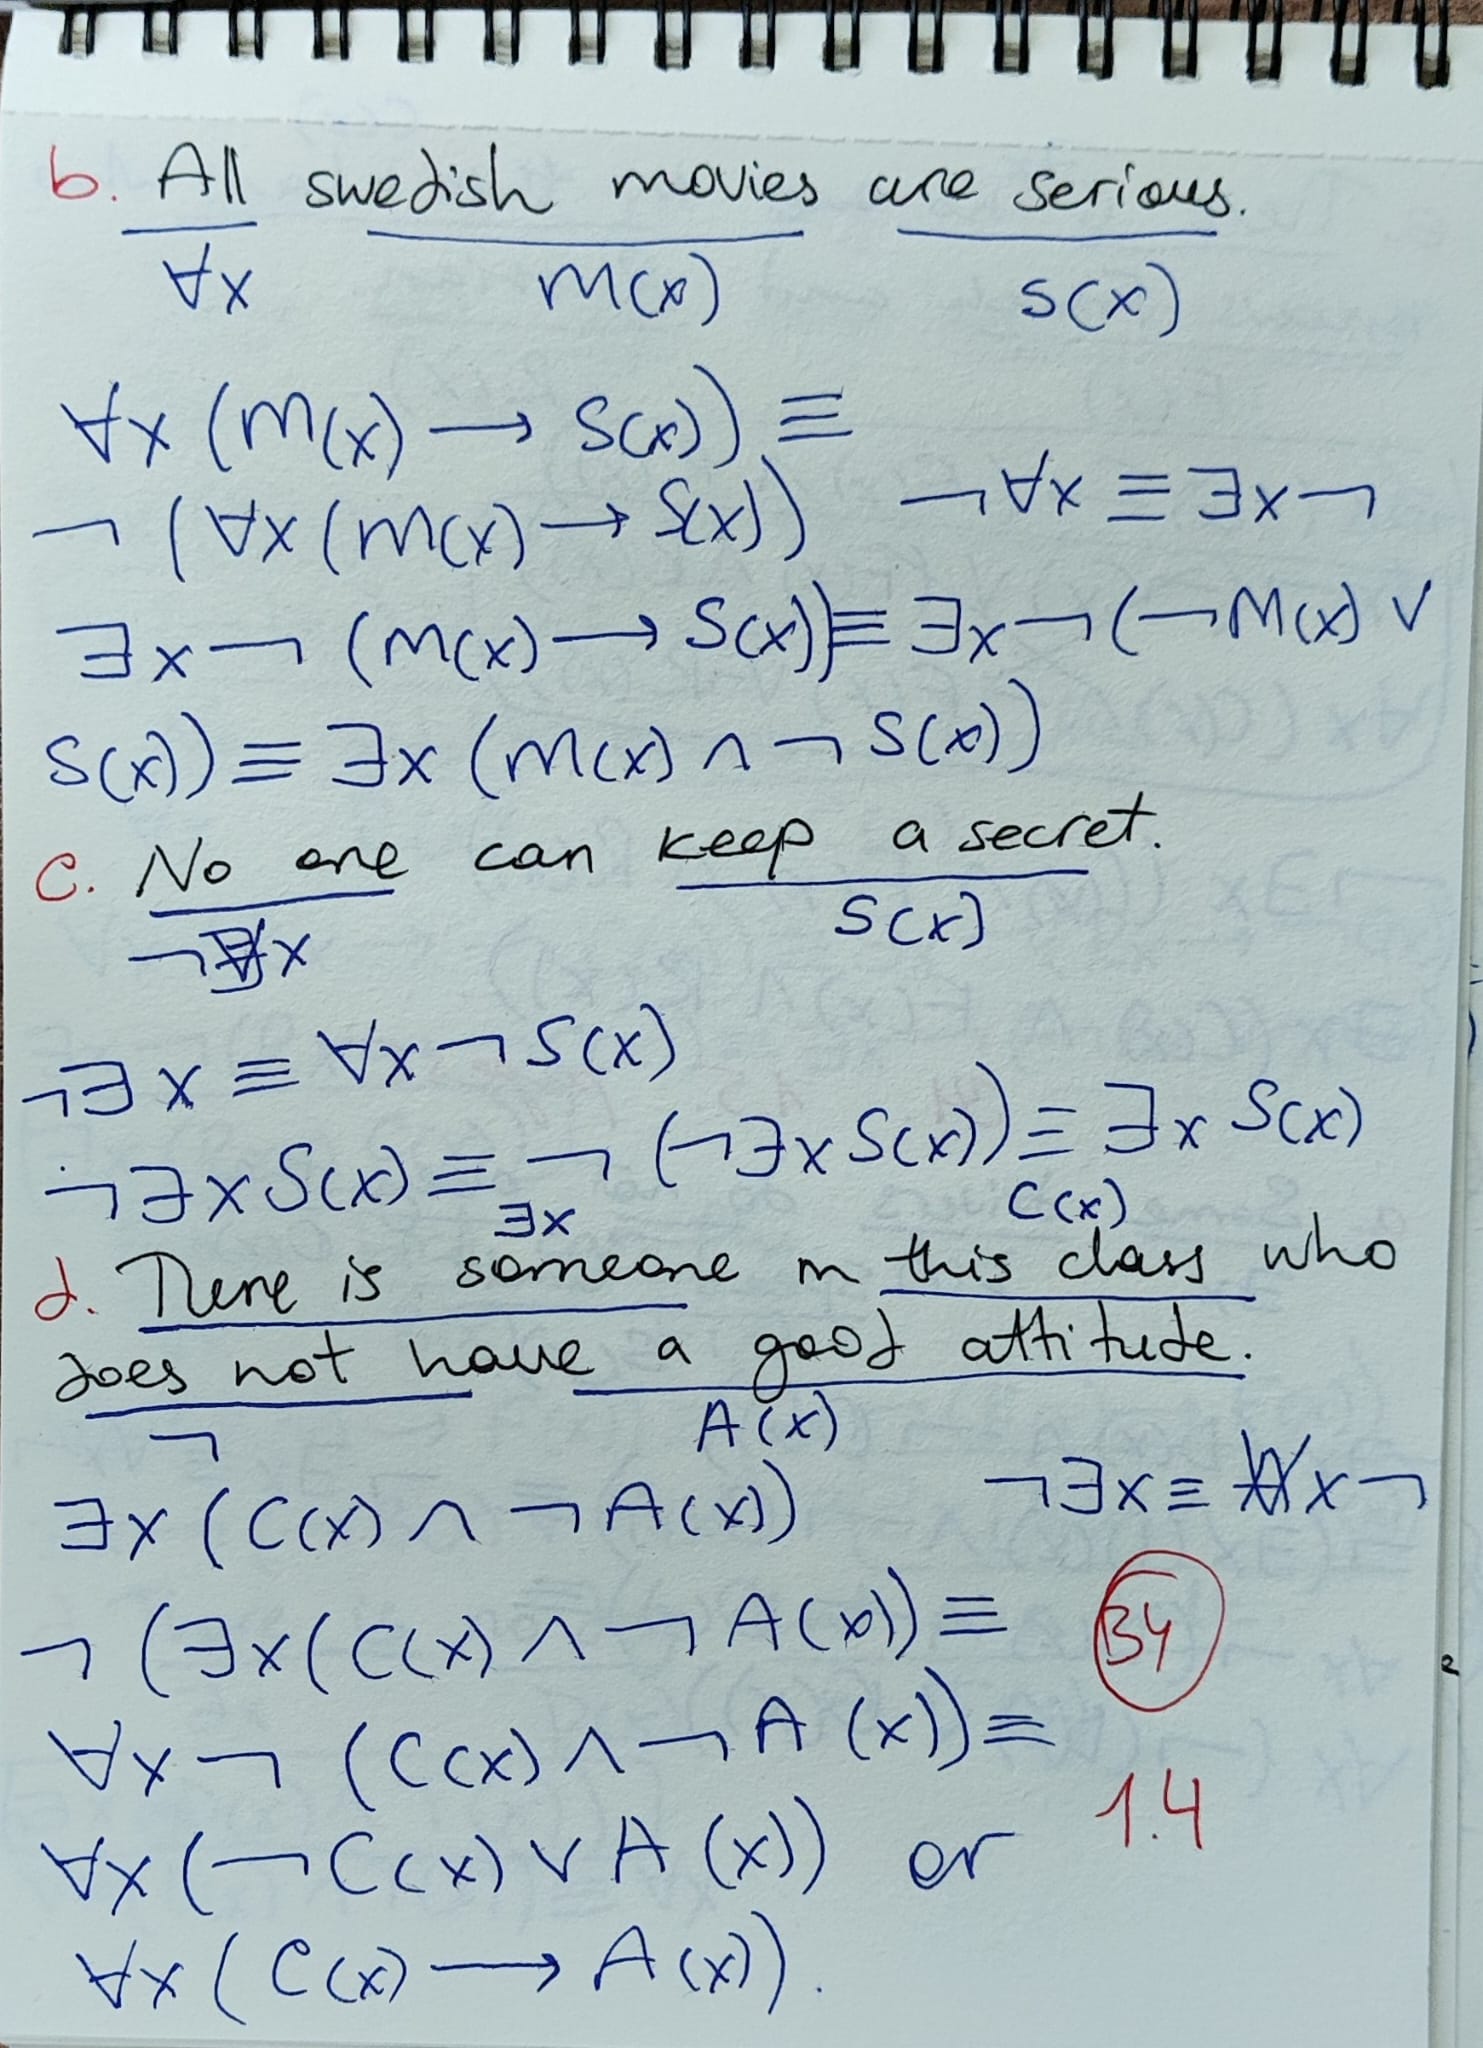 b. All swedish movies are serious.
∀x M(x) S(x)
∀x (M(x) → S(x)) ≡
¬ (∀x (M(x) → S(x)) ¬∀x ≡ ∃x¬
∃x¬ (M(x) → S(x)) ≡ ∃x¬(¬M(x) ∨
S(x)) ≡ ∃x (M(x) ∧ ¬S(x))
c. No one can keep a secret.
¬∃x S(x)
¬∃x ≡ ∀x¬S(x)
¬∃x S(x) ≡ ¬(¬∃x S(x)) ≡ ∃x S(x)
∃x C(x)
d. There is someone in this class who
does not have a good attitude.
¬ A(x)
∃x (C(x) ∧ ¬A(x)) ¬∃x ≡ ∀x¬
¬ (∃x (C(x) ∧ ¬A(x)) ≡ 34
∀x¬ (C(x) ∧ ¬A(x)) ≡
1.4
∀x (¬C(x) ∨ A(x)) or
∀x (C(x) → A(x)).